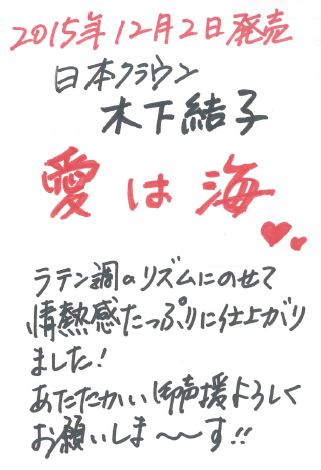 2015年12月2日発売
日本クラウン
木下結子
愛は海
ラテン調のリズムにのせて
情熱感たっぷりに仕上がり
ました!
あたたかい御声援よろしく
お願いしま〜〜す!!